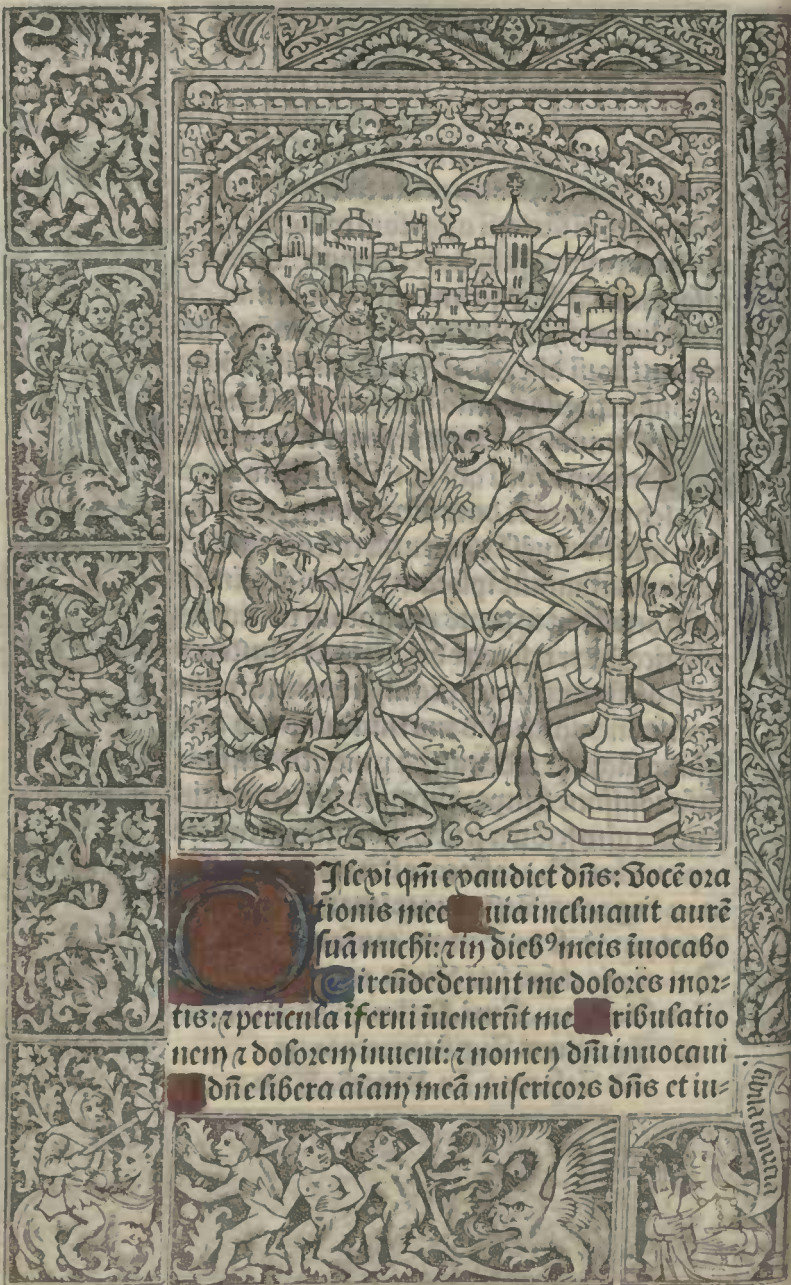 DJlexi qm̄ exaudiet dn̄s: Vocē ora
tionis mee uia inclinauit aurē
suā michi: ⁊ in dieb⁹ meis īuocabo
Circūdederunt me dolores mor⸗
tis: ⁊ pericula īferni īuenerūt me ribulatio
nem ⁊ dolorem inueni: ⁊ nomen dn̄i inuocaui
dn̄e libera aīam meā misericors dn̄s et iu⸗